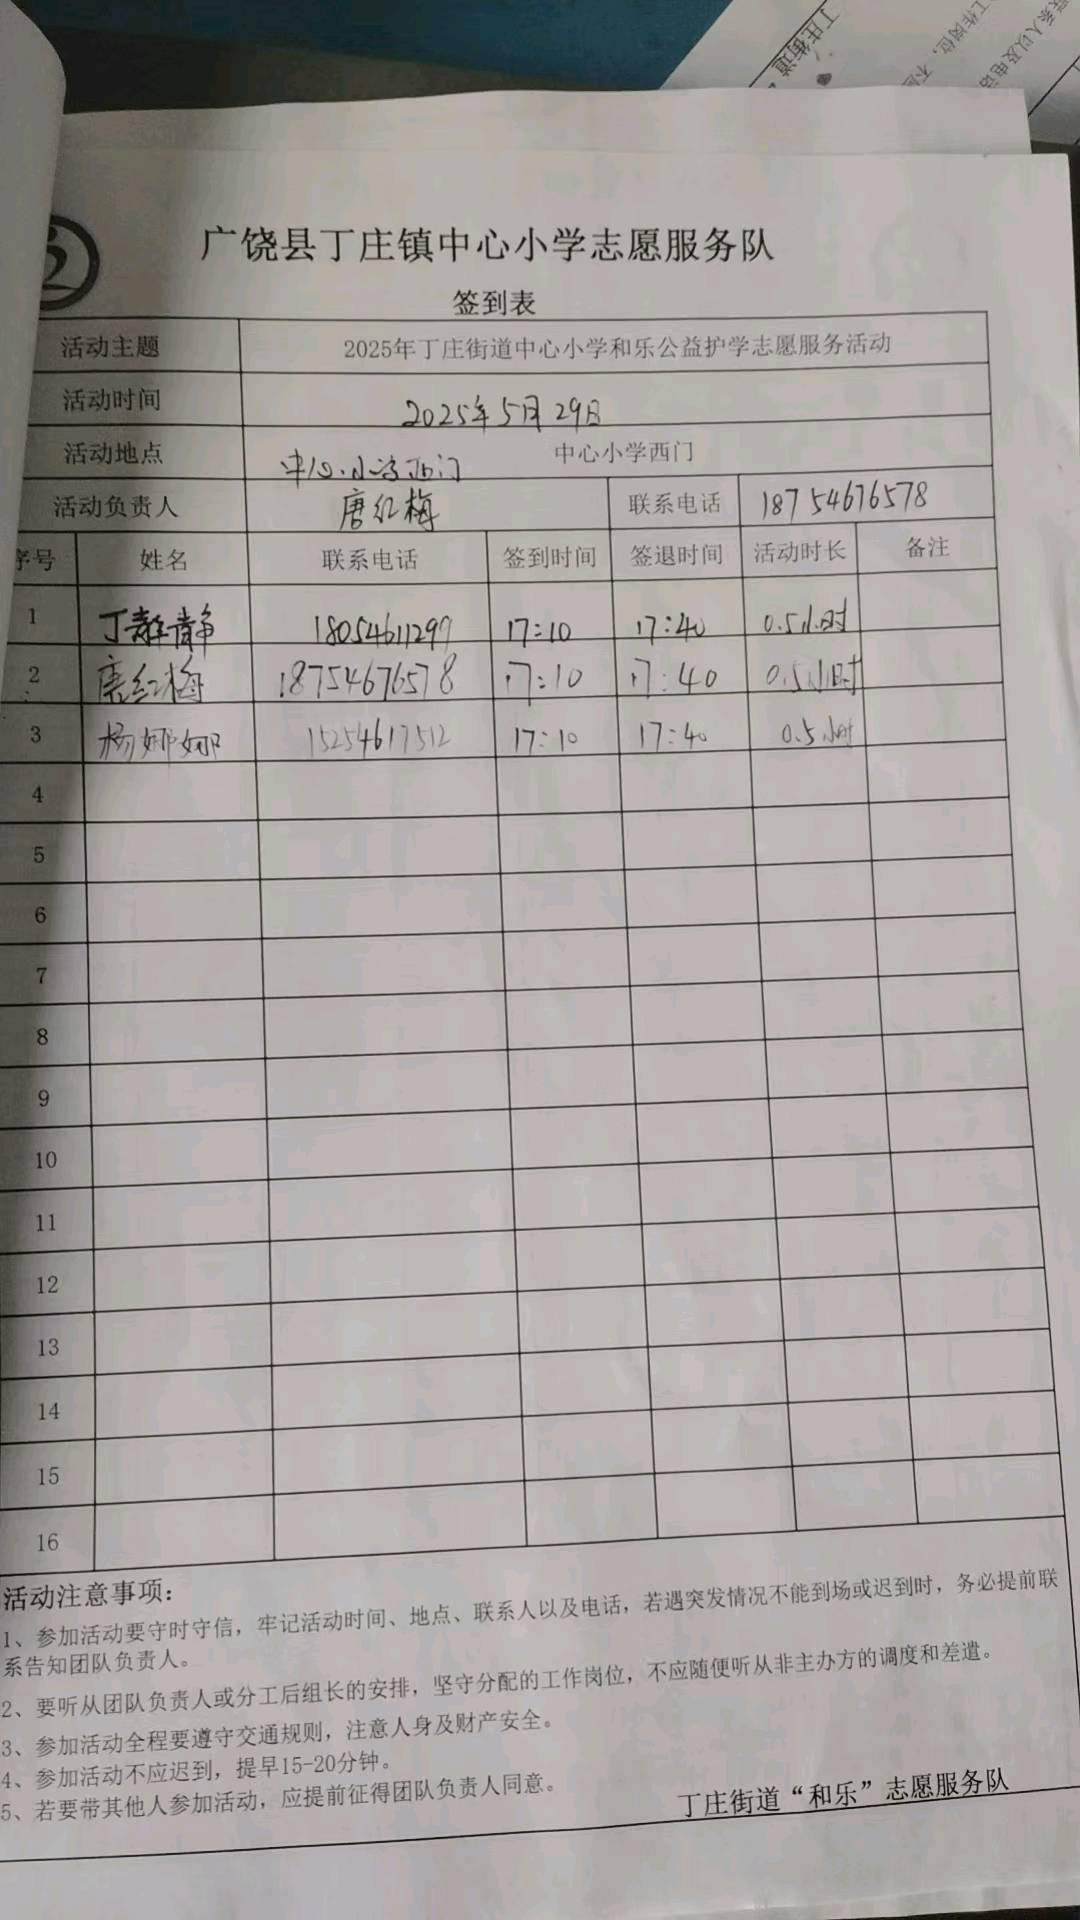 丁庄街道
联系人以及电话
工作岗位，不应
广饶县丁庄镇中心小学志愿服务队
签到表
活动主题 2025年丁庄街道中心小学和乐公益护学志愿服务活动
活动时间 2025年5月29日
活动地点 中心小学西门 中心小学西门
活动负责人 唐红梅 联系电话 18754676578
序号 姓名 联系电话 签到时间 签退时间 活动时长 备注
1 丁静静 18054611299 17:10 17:40 0.5小时
2 唐红梅 18754676578 17:10 17:40 0.5小时
3 杨娜娜 15254617512 17:10 17:40 0.5小时
4
5
6
7
8
9
10
11
12
13
14
15
16
活动注意事项：
1、参加活动要守时守信，牢记活动时间、地点、联系人以及电话，若遇突发情况不能到场或迟到时，务必提前联
系告知团队负责人。
2、要听从团队负责人或分工后组长的安排，坚守分配的工作岗位，不应随便听从非主办方的调度和差遣。
3、参加活动全程要遵守交通规则，注意人身及财产安全。
4、参加活动不应迟到，提早15-20分钟。
5、若要带其他人参加活动，应提前征得团队负责人同意。
丁庄街道“和乐”志愿服务队